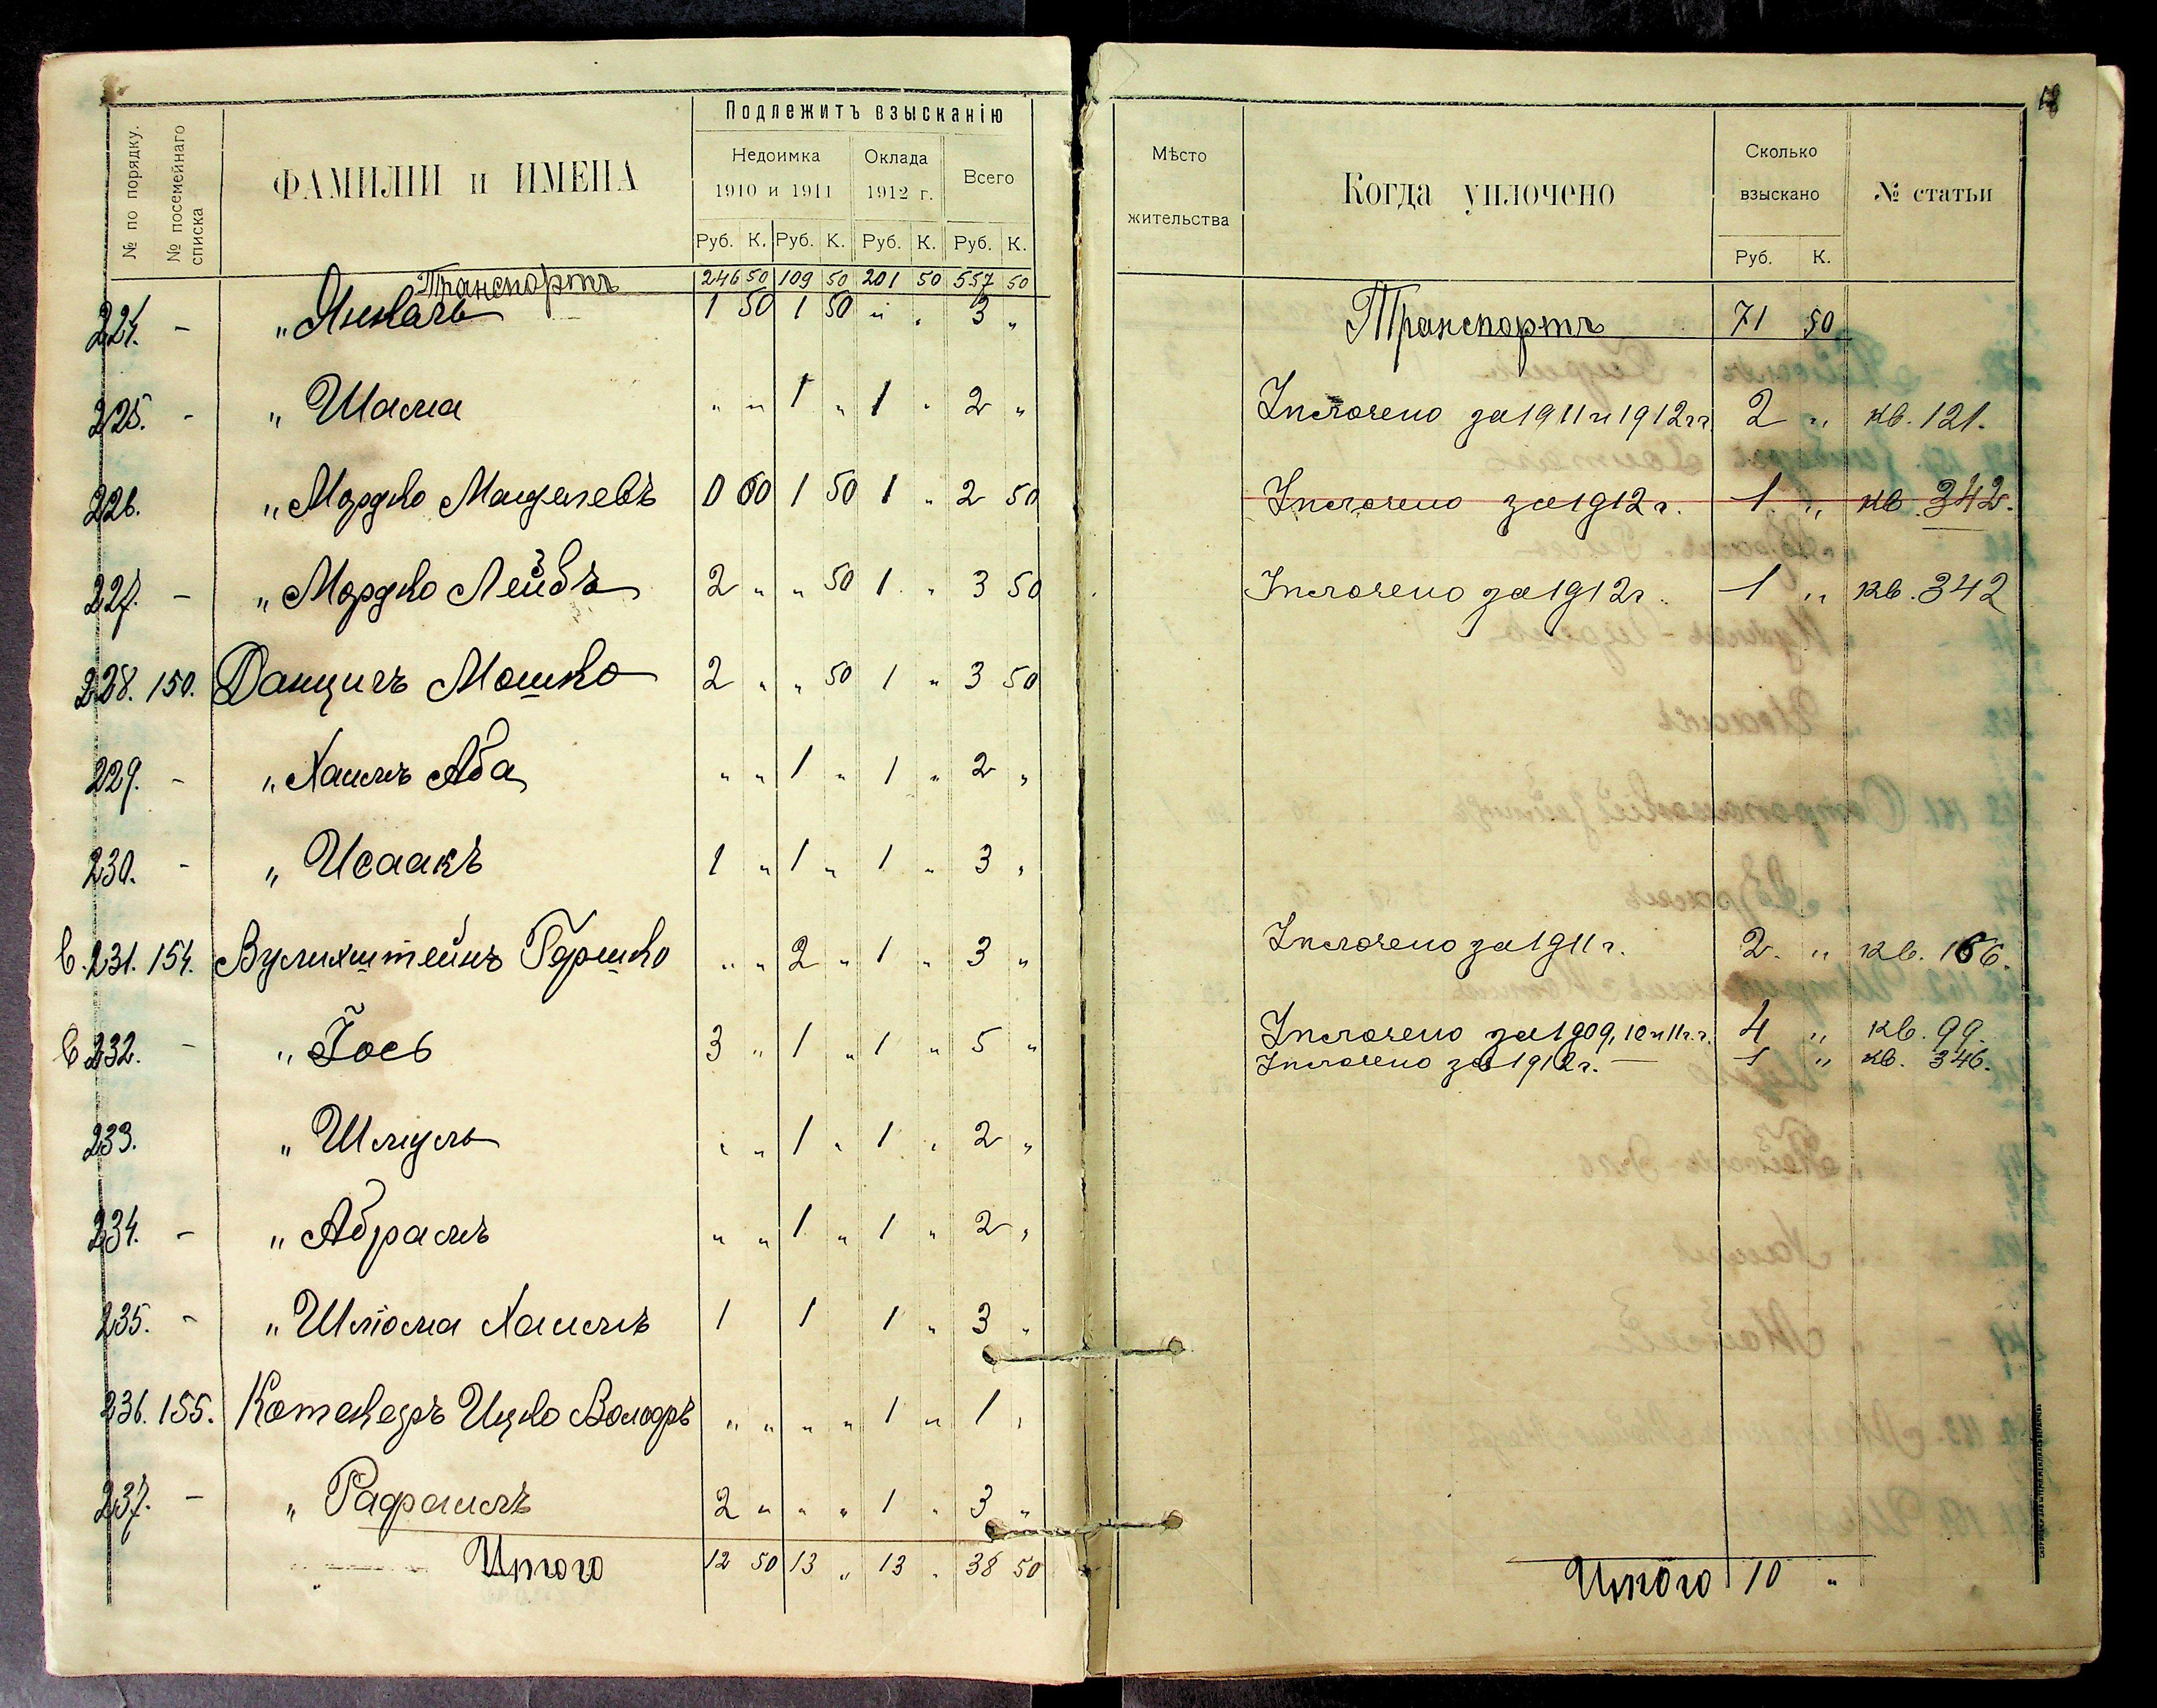 № по порядку.
№ посемейнаго списка
ФАМИЛІИ и ИМЕНА
Подлежитъ взысканію
Недоимка 1910 и 1911
Оклада 1912 г.
Всего
Руб. К. Руб. К. Руб. К. Руб. К.
Транспортъ 246 50 109 50 201 50 557 50
224. - " Янкель 1 50 1 50 " " 3 "
225. - " Шама " " 1 " 1 " 2 "
226. " Мордко 1 50 1 " 2 50
227. - " Мордко Лейбъ 2 " " 50 1 " 3 50
228. 150. Данцигъ Мошко 2 " " 50 1 " 3 50
229. - " Хаимъ Аба " " 1 " 1 " 2 "
230. - " Исаакъ 1 " 1 " 1 " 3 "
в. 231. 154. Вулихштейнъ Гершко " " 2 " 1 " 3 "
в 232. - " Іось 3 " 1 " 1 " 5 "
233. " Шмуль " " 1 " 1 " 2 "
234. - " Абрамъ " " 1 " 1 " 2 "
235. - " Шліома Хаимъ 1 1 1 " 3 "
236. 155. Ицко " " " " 1 " 1 "
237. - " 2 " " " 1 " 3 "
Итого 12 50 13 " 13 " 38 50
18
Мѣсто жительства
Когда уплочено
Сколько взыскано
№ статьи
Руб. К.
Транспортъ 71 50
Уплочено за 1911 и 1912 гг. 2 " кв. 121.
Уплочено за 1912 г. 1 " кв. 342.
Уплочено за 1912 г. 1 " кв. 342
Уплочено за 1911 г. 2. " кв. 166.
Уплочено за 1909, 10 и 11 г.г. 4 " кв. 99.
Уплочено за 1912 г. — 1 " кв. 346.
Итого 10 "